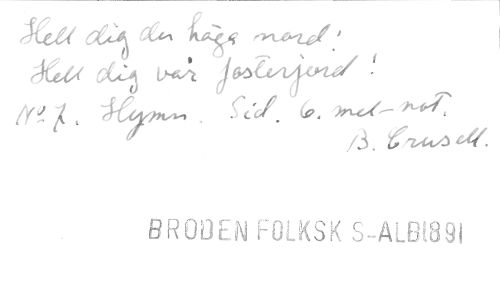 Hell dig du höga nord!
Hell dig vår fosterjord!
No 7. Hymn. Sid. 6. mel-not.
B. Crusell.
BRODEN FOLKSK S-ALB1891